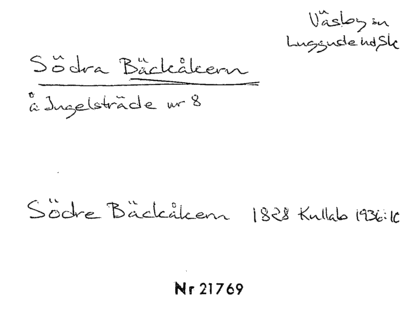 Väsby sn
Luggude hd, Sk
Södra Bäckåkern
å Ingelsträde nr 8
Södre Bäckåkern 1828 Kullab 1936:10
Nr 21769